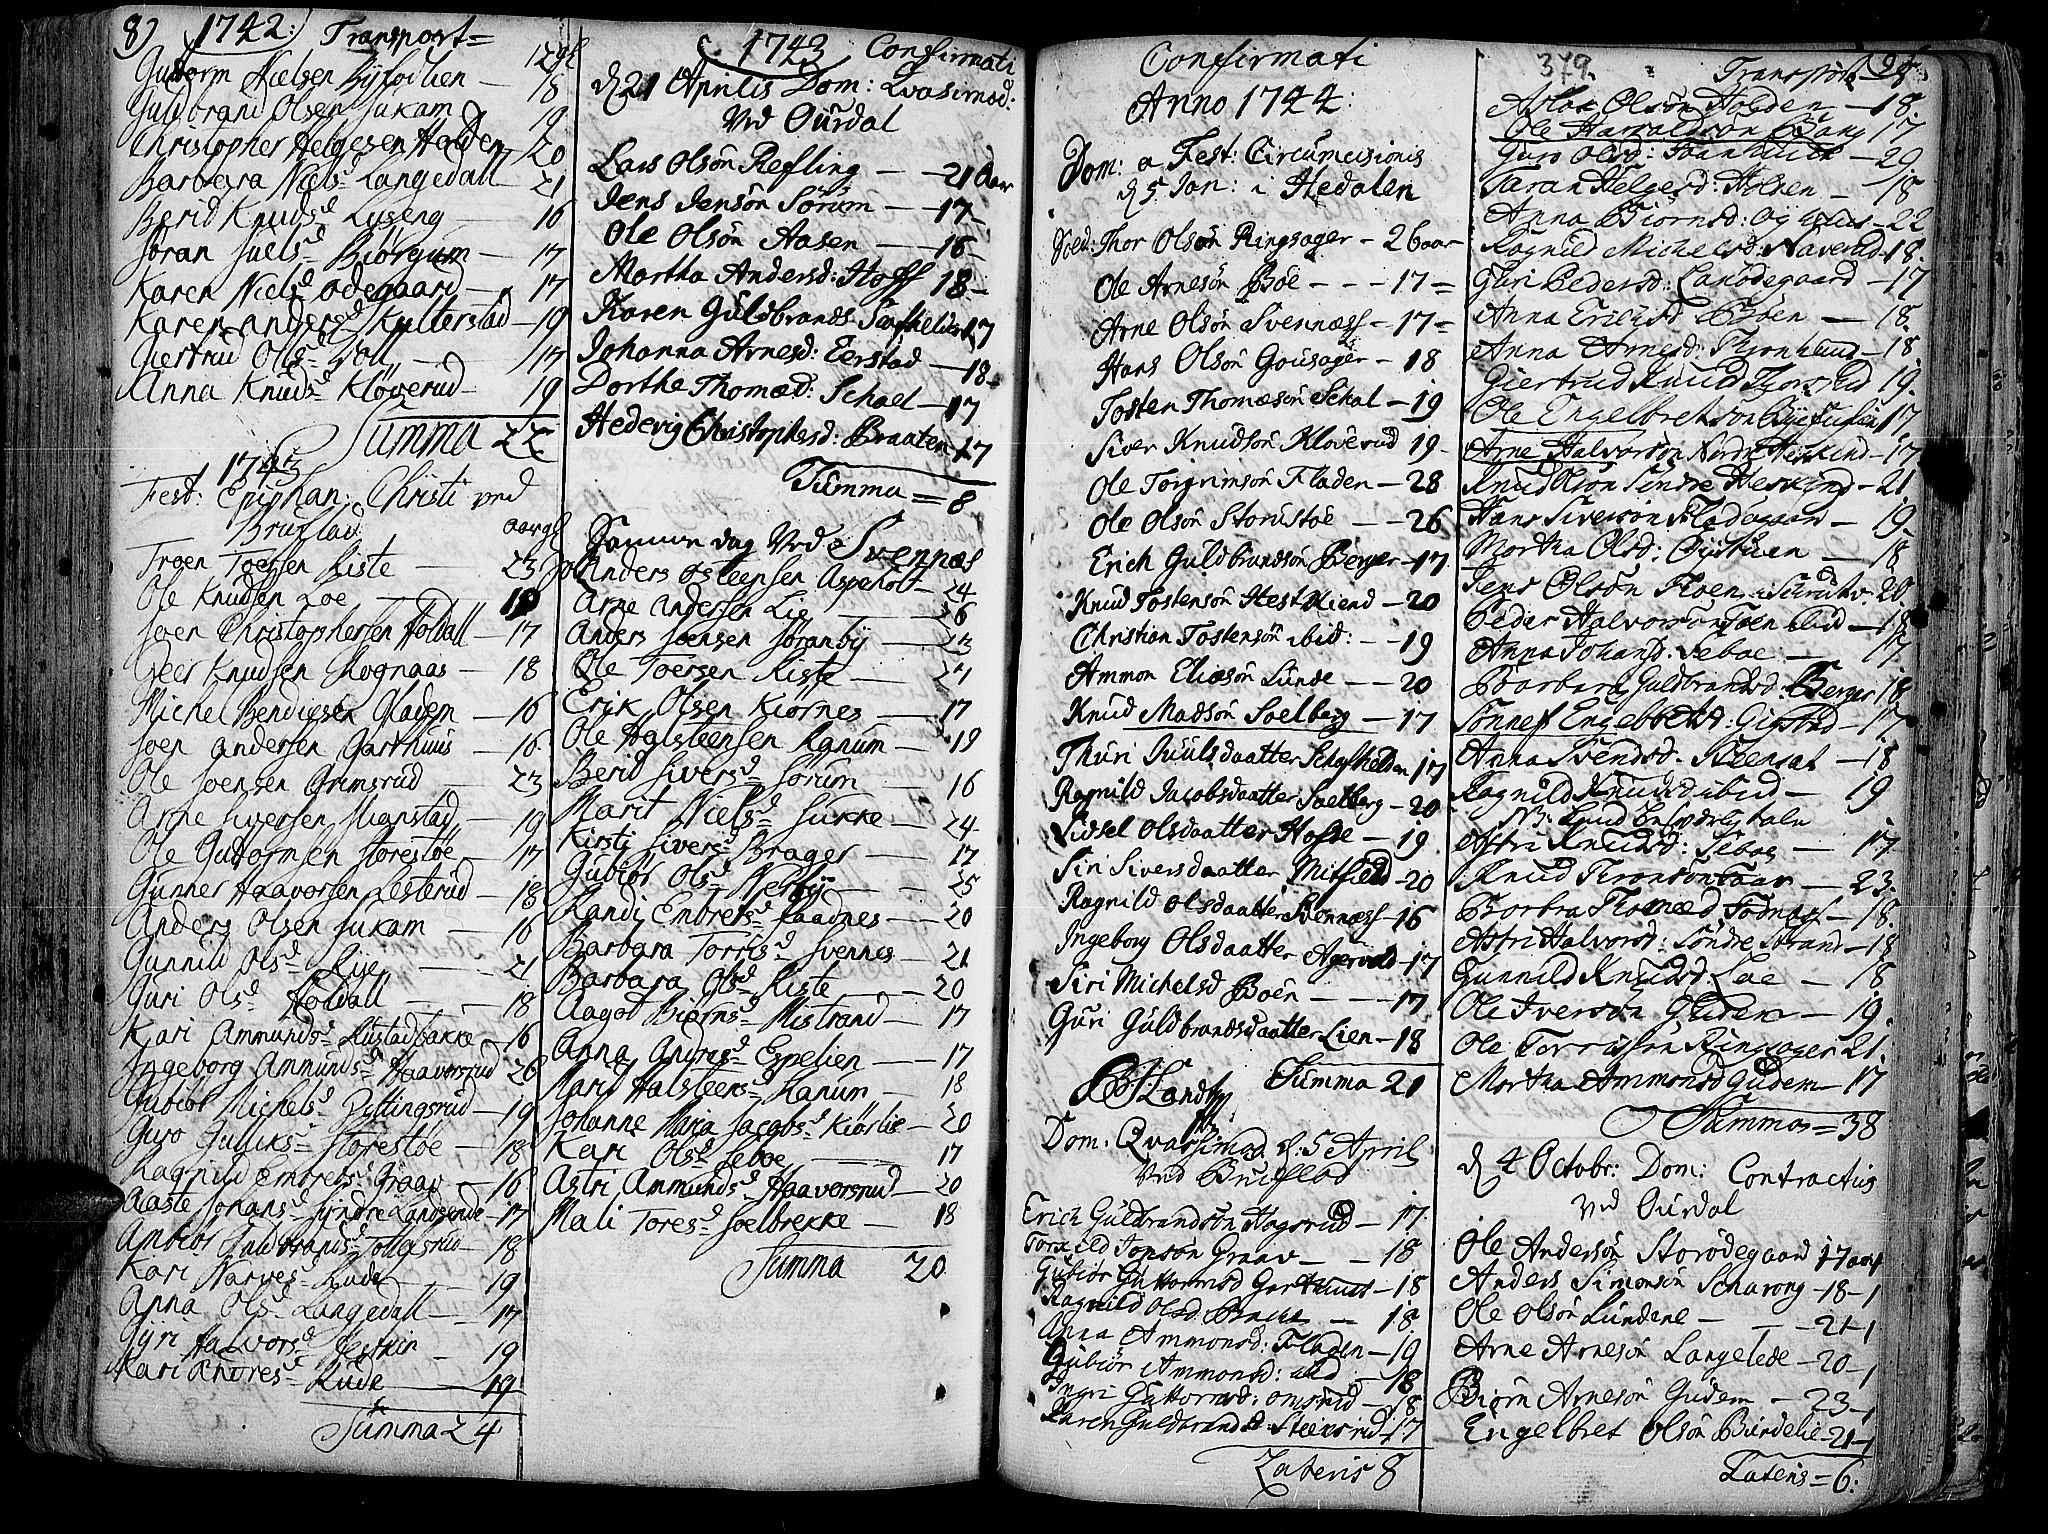 8) 1742: Transport=
12
Guttorm Nielsen Byfoellien — 18
Guldbrand Olsen Jukam — 19
Christopher Helgesen Halden 20
Barbara Niels^d Langedall — 21
Berid Knuds^d Lyseng — 16
Joran Juels^d Biörgum — 17
Karen Niels^d ödegaard — 17
Karen Anders^d Kulterstad — 19
Giertrud Ols^d Goll — 17
Anna Knuds^d Klöverud — 19
Summa 22
1743
Fest: Epiphan: Christi ved
Bruflad
Troen Toersen Riste — 23
Ole Knudsen Loe — 19
Joen Christophersen Holdall — 17
Geer Knudsen Skognaas — 18
Michel Bendixsen Gladem — 16
Joen Andersen Garthuus — 16
Ole Joensen Grimsrud — 23
Arne Siversen Mignstad — 19
Ole Guttormsen Storestöe — 17
Gunner Haavorsen Lesterud — 18
Anders Olsen Jukam — 16
Gunnild Ols^d Rye — 21
Guri Ols^d Holdall — 18
Kari Ammunds^d Rustadbakke — 16
Ingeborg Ammunds^d Haavorsrud 26
Gubiör Michels^d Dyttingsrud — 19
Guro Gulliks^d Storestöe — 18
Ragnild Embrets^d Graav — 16
Aaste Johans^d Syndre Landsende — 17
Ambiör Guldbrands^d Tollefsrud — 18
Kari Narves^d Rude — 19
Anna Ols^d Langedall — 17
Gyri Halvors^d Hestkin — 19
Kari Andres^d Rude — 19
Summa 24
1743 Confirmati
d 21 Aprilis Dom: Qvasimod:
Ved Ourdal
Lars Olsön Refling — 21 Aar
Jens Jensön Sörum — 17
Ole Olsön Aasen — 18
Martha Andersd: Hoff 18
Karen Guldbrandsd 17
Johanna Arnesd: Eerstad — 18
Dorthe Thomæd: Schael — 17
Hedevig Christophersd: Braaten 17
Summa = 8
Samme dag Ved Svennæs
Anders Osteensen Aspeholt — 24
Arne Andersen Lie — 26
Anders Joensen Joranby — 23
Ole Toersen Riste — 21
Erik Olsen Kiörnes — 17
Ole Halsteensen Ranum — 19
Berid Sivers^d Sorum — 16
Marit Niels^d Jukke — 24
Kirsti Sivers^d Brager — 17
Gubiör Ols^d Nerby — 25
Randi Embrets^d Faadnes — 20
Barbara Torris^d Svennes — 21
Barbara Ols^d Riste — 20
Aagot Biörns^d Mistrand — 17
Anna Andras^d Espelien — 17
Marit Halsteens^d Ranum — 18
Johanne Maria Jacobs^d Kiörlie — 20
Kari Ols^d Seboe — 17
Astri Ammunds^d Haavorsrud — 20
Mali Tores^d Joelbrekke — 18
Summa 20
Confirmati
Anno 1744:
Dom: a Fest: Circumcisionis
d 5 Jan: i Hedalen
Soed: Thor Olsön Ringsager — 26 aar
Ole Arnesön Böe — 17
Arne Olsön Svennæss — 17
Hans Olsön Gousager — 18
Tosten Thomæsön Schal — 19
Siver Knudsön Klöverud 19
Ole Torgrimsön Fladen — 28
Ole Olsön Storustöe — 26
Erich Guldbrandsön Berger — 17
Knud Tostensön Hestkiend — 20
Christian Tostensön ibid: — 19
Ammon Eliæsön Lunde — 20
Knud Madsön Soelberg — 17
Thuri Juulsdaatter Schofhelden 17
Ragnild Jacobsdaatter Soelberg — 20
Sidsel Olsdaatter Hofde — 19
Siri Siversdaatter Mitfield — 20
Ragnild Olsdaatter Svennæss — 16
Ingeborg Olsdaatter Agervold — 17
Siri Michelsd Böen — 17
Guri Guldbrandsdaatter Lien — 18
Summa 21
Dom: Qvasimod d: 5 April
Ved Bruflad
Erich Guldbrandsön Hogsrud — 17
Torkild Jonsön Graav — 18
Gubiör Guttormsd Garthuus — 18
Ragnild Olsd Brache — 18
Anna Ammonsd: Fladen — 19
Gubiör Ammonsd: ibid — 18
Ingri Guttormsd: Omsrud — 18
Karen Guldbrandsd: Steensrud 17
Lateris 8
379.
Transport 8
Aslak Olsön Holden — 18
Ole Harraldsön Bang 17
Guro Olsd: Tornhuus — 20
Taran Helgesd: Holnen — 18
Anna Biörnsd: — 22
Ragnild Michelsd: Haverud 18
Guri Pedersd: Lanödegaard — 17
Anna Erichsd Böen — 18
Anna Arnesd: Thornhund — 18
Giertrud Knudsd 19
Ole Engelbretsön Byefulien 17
Arne Halvorsön Nordre Heskind — 17
Knud Olsön Söndre Heskind — 21
Hans Siversön Flodegaard — 19
Martha Olsd: Oystuen — 18
Jens Olsön Floen 20
Peder Halvorsön Floen ibid — 18
Anna Johansd: Seboe — 17
Barbara Guldbrandsd: Berger 18
Sönnef Engebretsd: Gigstad — 17
Anna Svendsd: Steensæt — 18
Ragnild Knudsd ibid — 19
Astri Knudsd: Seboe — 17
Knud Tronsön — 23
Barbra Thomæd Fodnæss — 18
Astri Halvorsd: Söndre Strand — 18
Gunnild Knudsd Loe — 18
Ole Iversön Gudem — 19
Ole Torrisön Ringsager 21
Martha Ammonsd Gudem — 17
Summa = 38
d 4 Octobr: Dom: Contractius
ved Ourdal
Ole Andersön Storödegaard 17 aar
Anders Simonsön Scharong — 18
Ole Olsön Lundene — 21
Arne Arnesön Langelede — 20
Biörn Arnesön Gudem — 23
Engelbret Olsön Burdelie — 21
Lateris = 6: